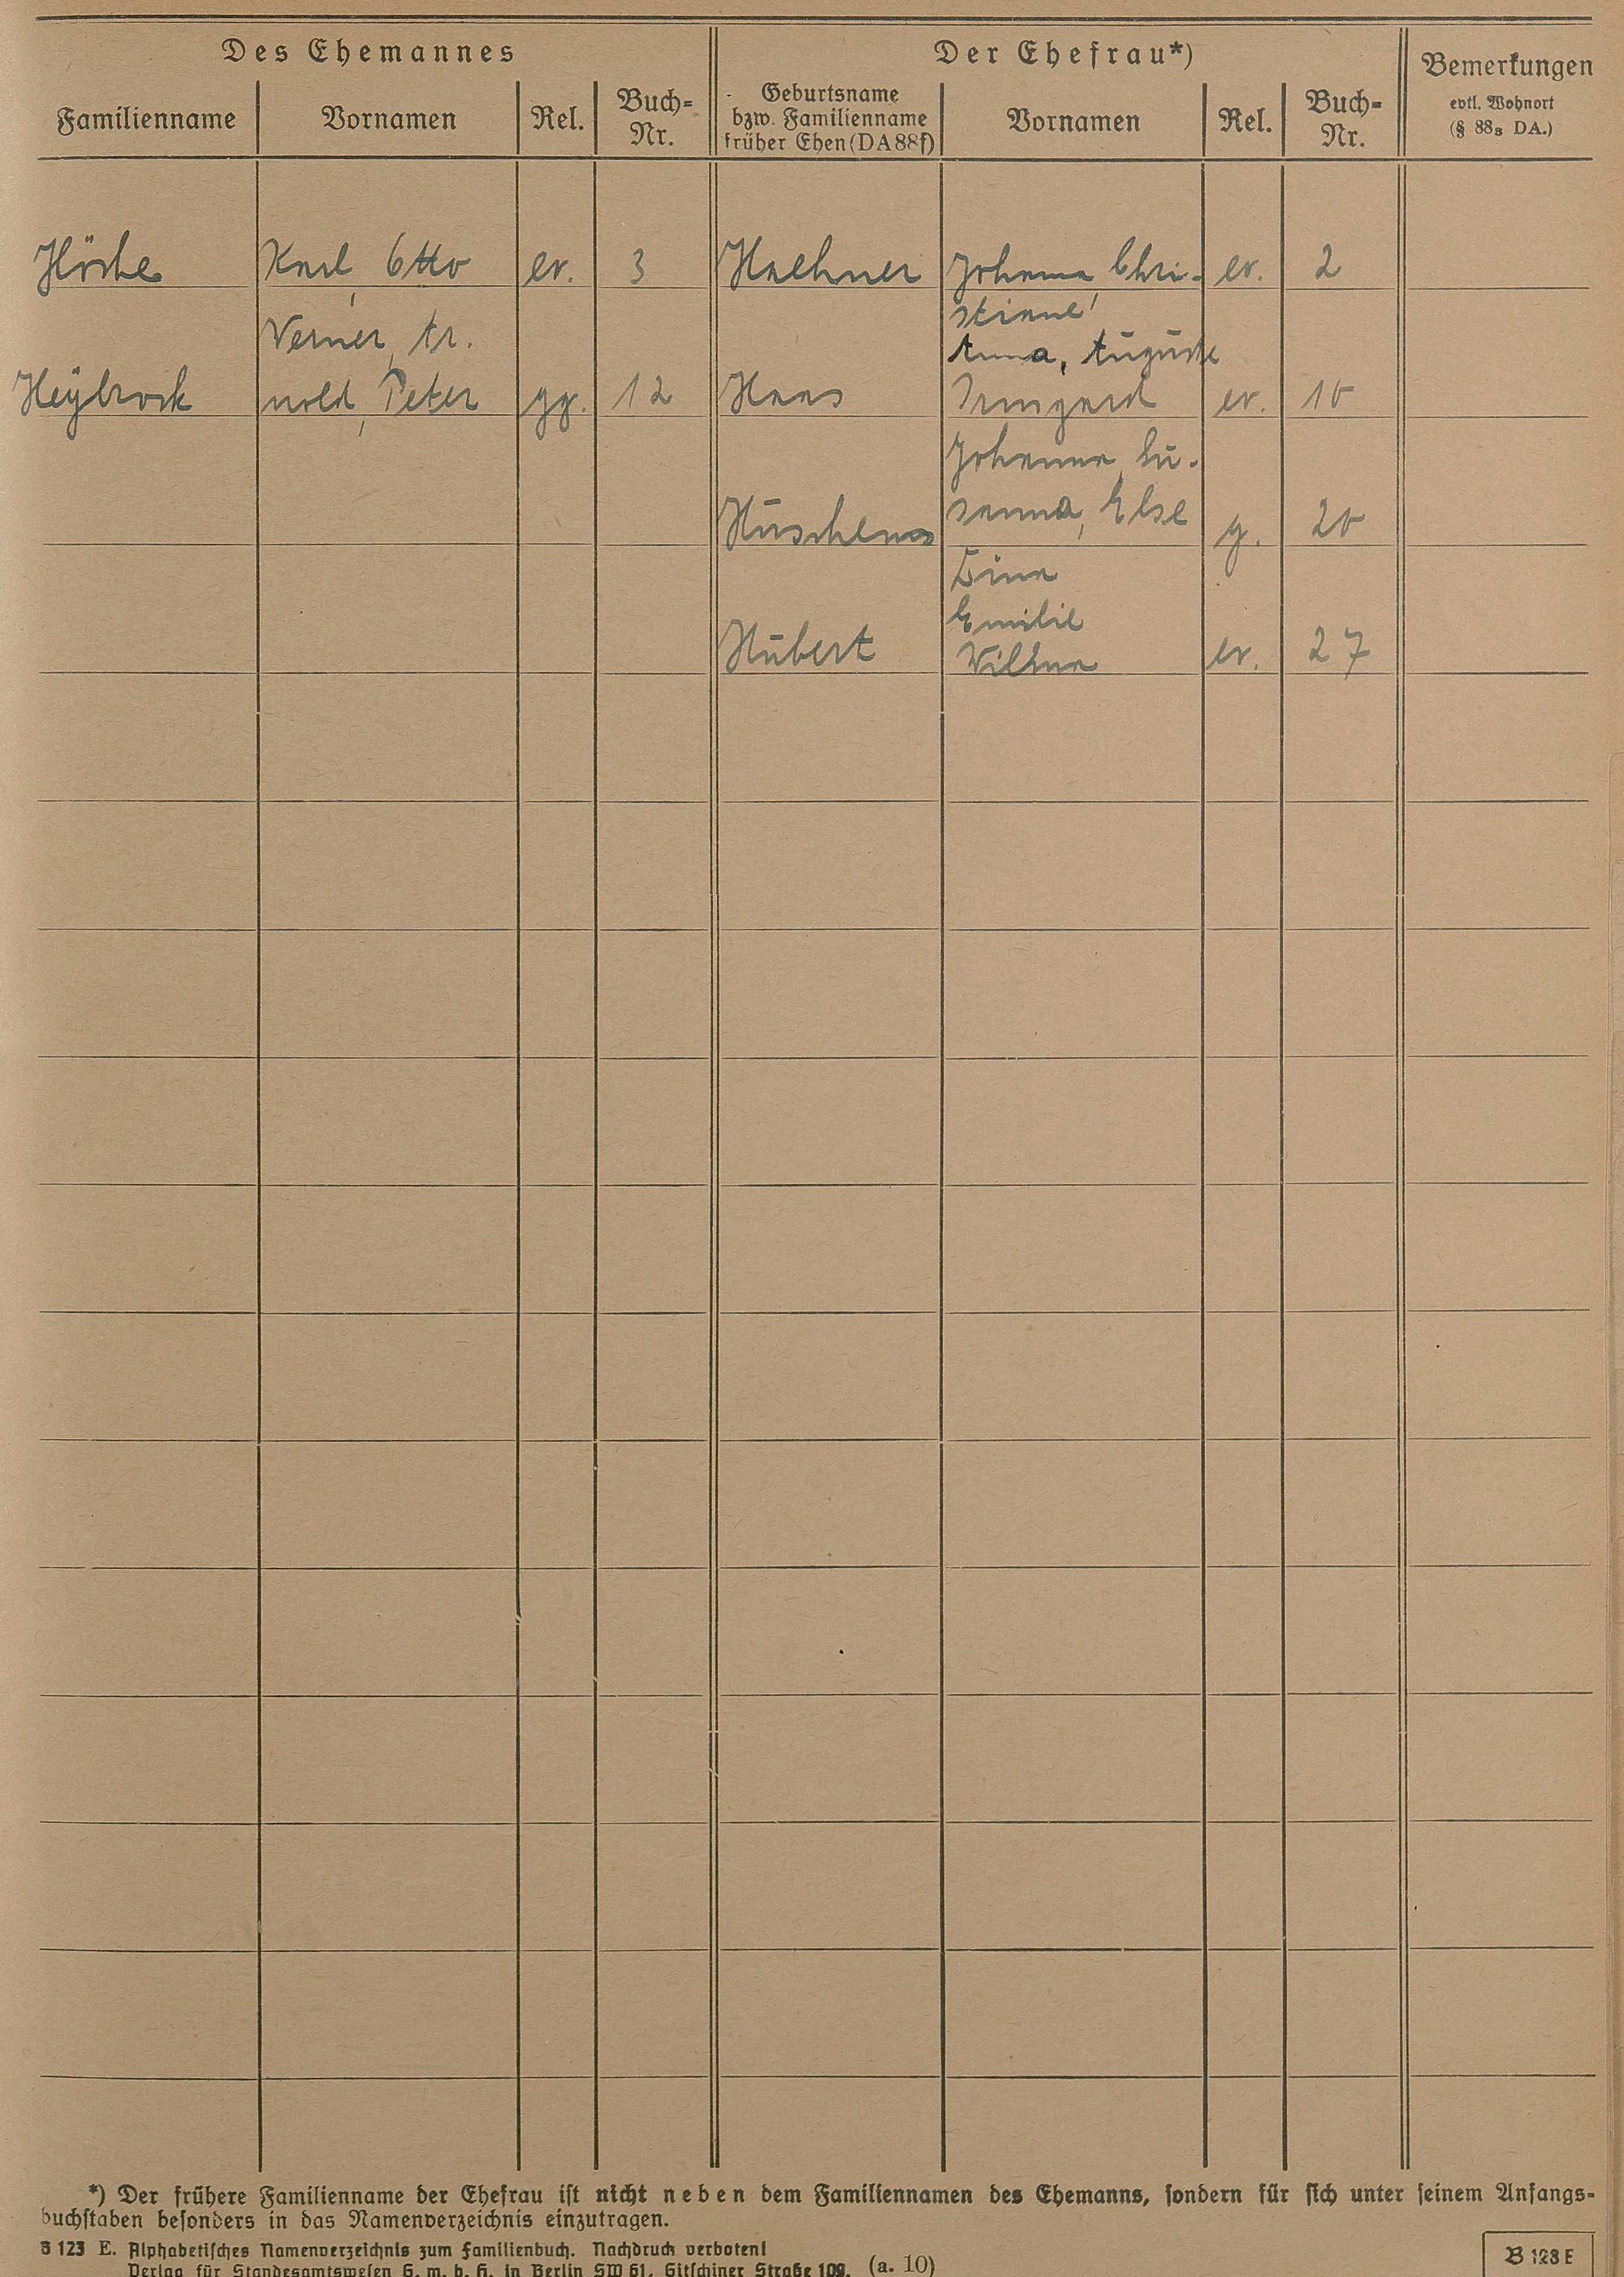 Des Ehemannes
Der Ehefrau*)
Bemerkungen
evtl. Wohnort
(§ 88₃ DA.)
Familienname
Vornamen
Rel.
Buch=
Nr.
Geburtsname
bzw. Familienname
früher Ehen (DA 88f)
Vornamen
Rel.
Buch=
Nr.
Karl, Otto ev. 3 Haehner Johanna Chri- ev. 2
stiane
Werner, Ar. Anna, Auguste
Heybrock nold, Peter gg. 12 Haas Irmgard ev. 10
Johanna, Su-
sanna, Else g. 20
Lina
Emilie
Hubert Wilma ev. 27
*) Der frühere Familienname der Ehefrau ist nicht neben dem Familiennamen des Ehemanns, sondern für sich unter seinem Anfangs-
buchstaben besonders in das Namenverzeichnis einzutragen.
B 123 E. Alphabetisches Namenverzeichnis zum Familienbuch. Nachdruck verboten!
Verlag für Standesamtswesen G. m. b. H. in Berlin SW 61, Gitschiner Straße 109. (a. 10)
B 123 E